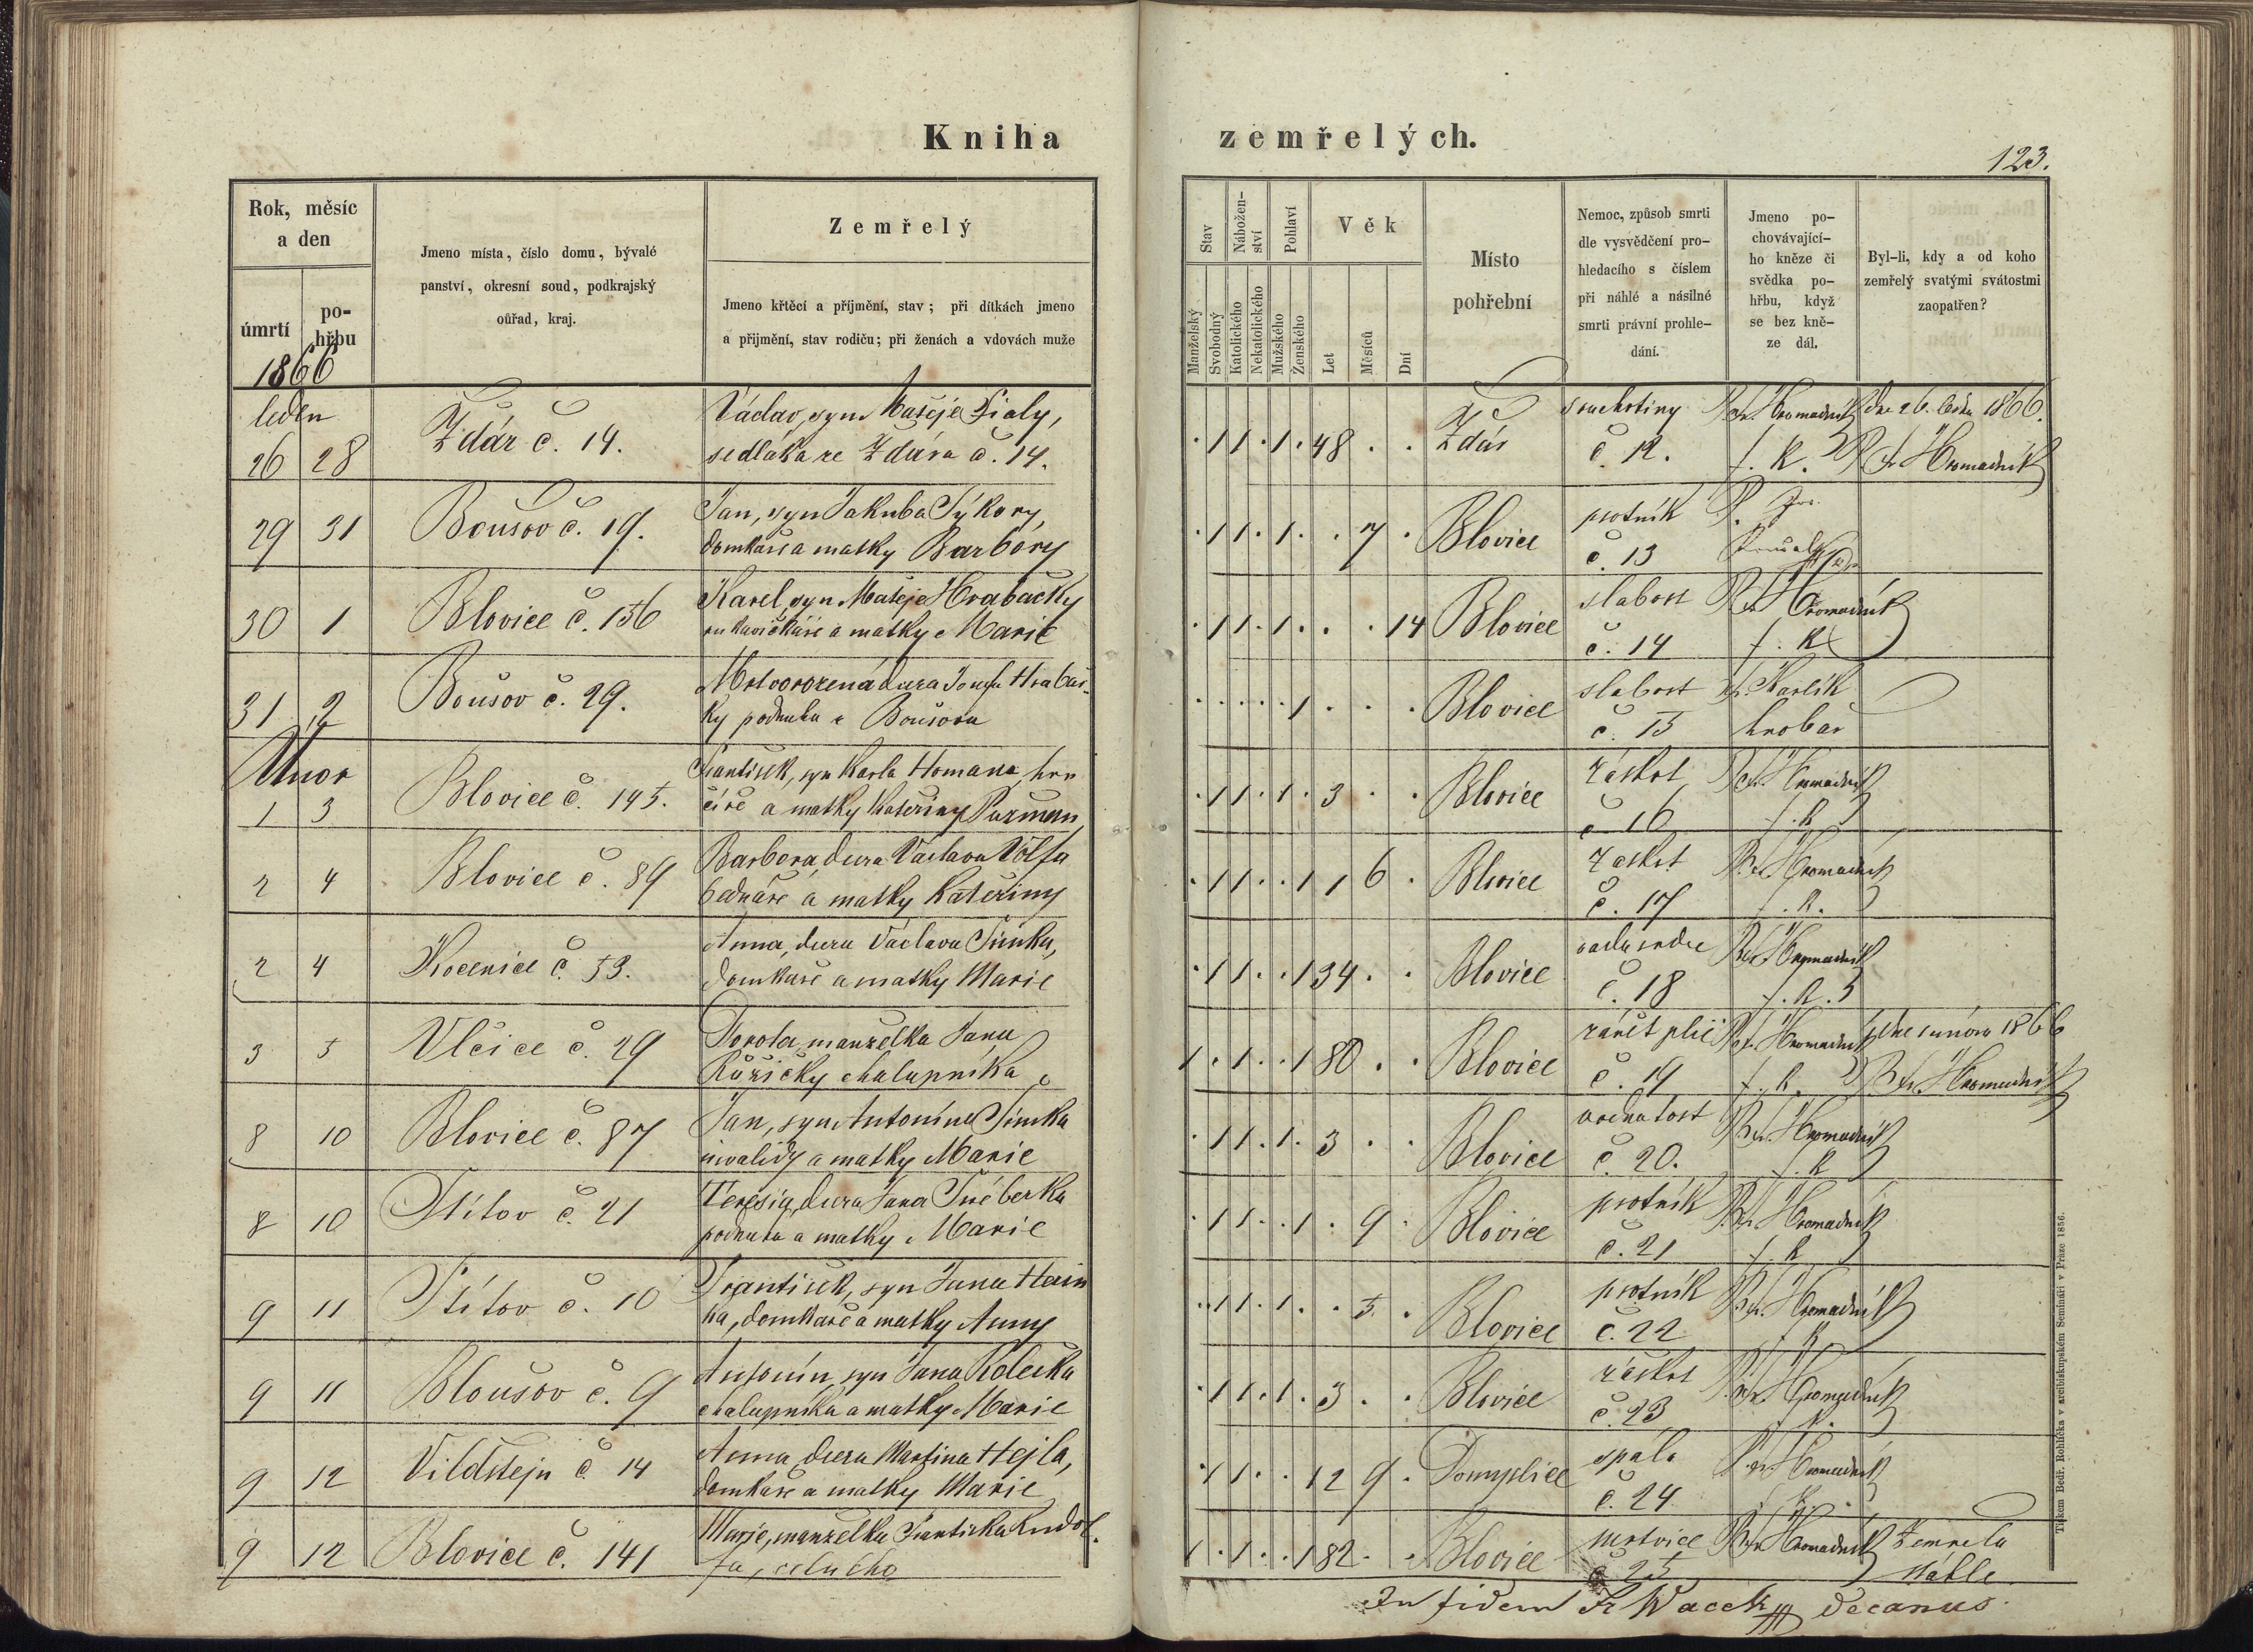 Kniha
zemřelých.
123.
Rok, měsíc
a den
úmrtí
po-
hřbu
Jmeno místa, číslo domu, bývalé
panství, okresní soud, podkrajský
ouřad, kraj.
Zemřelý
Jmeno křtěcí a příjmění, stav; při dítkách jmeno
a přijmění, stav rodiču; při ženách a vdovách muže
Stav
Nábožen-
ství
Pohlaví
Věk
Manželský
Svobodný
Katolického
Nekatolického
Mužského
Ženského
Let
Měsíců
Dní
Místo
pohřební
Nemoc, způsob smrti
dle vysvědčení pro-
hledacího s číslem
při náhlé a násilné
smrti právní prohle-
dání.
Jmeno po-
chovávající-
ho kněze či
svědka po-
hřbu, když
se bez kně-
ze dál.
Byl-li, kdy a od koho
zemřelý svatými svátostmi
zaopatřen?
1866
leden
26 28 Ždár č. 14.
Václav, syn Matěje Fialy,
sedláka ze Ždára č. 14.
. 1 1 . 1 . 48 . . Ždár
souchotiny
č. 12.
Fr. Hromadník
f. k.
dne 26. ledna 1866.
Fr. Hromadník
29 31 Bousov č. 19.
Jan, syn Jakuba Sýkory,
domkáře a matky Barbory
. 1 1 . 1 . . 7 . Blovice
psotník
č. 13
30 1 Blovice č. 156
Karel, syn Matěje Hrabačky
rukavičkáře a matky Marie
. 1 1 . 1 . . . 14 Blovice
slabost
č. 14
Hromadník
f. k.
31 2 Boušov č. 29.
Mrtvorozená dcera Josefa Hrabač-
ky podruha z Boušova
. . . . . 1 . . . Blovice
slabost
č. 15
Karlík
hrobař
Únor
1 3 Blovice č. 145.
František, syn Karla Homana, hrn
číře a matky Kateřiny
. 1 1 . 1 . 3 . . Blovice
záškrt
č. 16
Hromadník
f. k.
2 4 Blovice č. 89
Barbora, dcera Václava Volfa
bednáře a matky Kateřiny
. 1 1 . . 1 1 6 . Blovice
záškrt
č. 17
Hromadník
f. k.
2 4 Kocenice č. 53.
Anna, dcera Václava Šimka,
domkáře a matky Marie
. 1 1 . . 1 34 . . Blovice
vada srdce
č. 18
Hromadník
f. k.
3 5 Vlčice č. 29
Dorota manželka Jana
Růžičky chalupníka
1 . 1 . . 1 80 . . Blovice
zánět plic
č. 19
Hromadník
f. k.
dne února 1866
Fr. Hromadník
8 10 Blovice č. 87
Jan, syn Antonína Šimka
invalidy a matky Marie
. 1 1 . 1 . 3 . . Blovice
vodnatost
č. 20.
Hromadník
f. k.
8 10 Štítov č. 21
Teresia, dcera Jana
podruha a matky Marie
. 1 1 . . 1 . 9 . Blovice
psotník
č. 21
Hromadník
f. k.
9 11 Štítov č. 10
František, syn Jana Hein
ka, domkáře a matky Anny
. 1 1 . 1 . . 5 . Blovice
psotník
č. 22
Hromadník
9 11 Bloušov č. 9
Antonín, syn Jana Kolečka
chalupníka a matky Marie
. 1 1 . 1 . 3 . . Blovice
záškrt
č. 23
Hromadník
9 12 Vildštejn č. 14
Anna dcera Martina Hejla,
domkáře a matky Marie
. 1 1 . . 1 2 9 . Domyslice
spála
č. 24
Hromadník
9 12 Blovice č. 141
Marie, manželka Františka Rudol-
fa,
1 . 1 . . 1 82 . . Blovice
mrtvice
č. 25
Hromadník
Zemřela
náhle
In fidem Fr Wacek decanus.
Tiskem Bedř. Rohlíčka v arcibiskupském Semináři v Praze 1856.